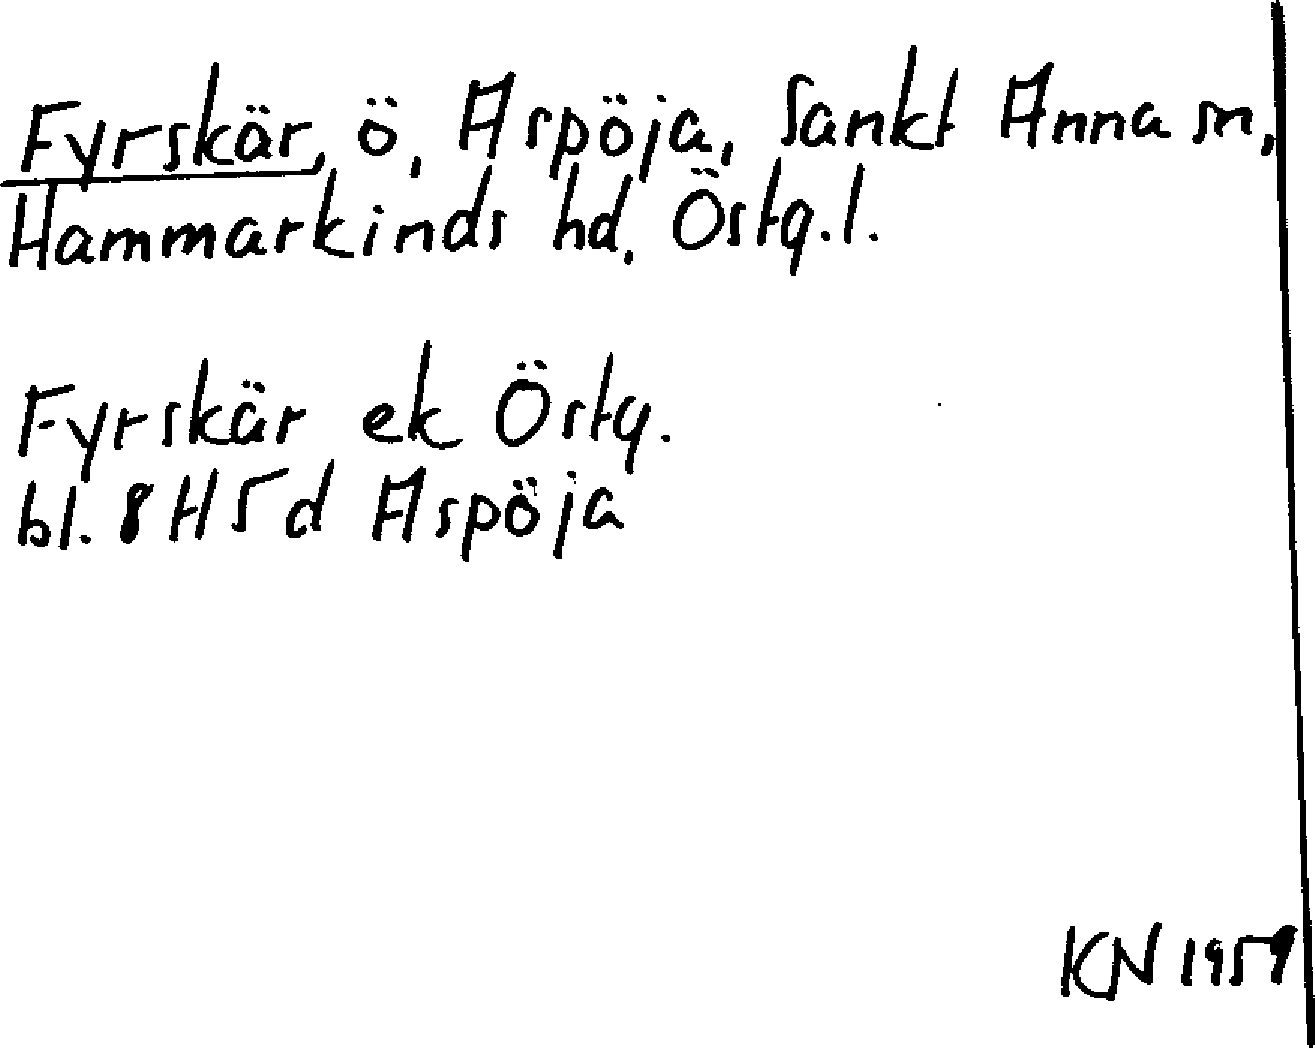 Fyrskär, ö, Aspöja, Sankt Anna sn,
Hammarkinds hd. Östg.l.
Fyrskär ek Östg.
bl. 8H5d Aspöja
KN 1959